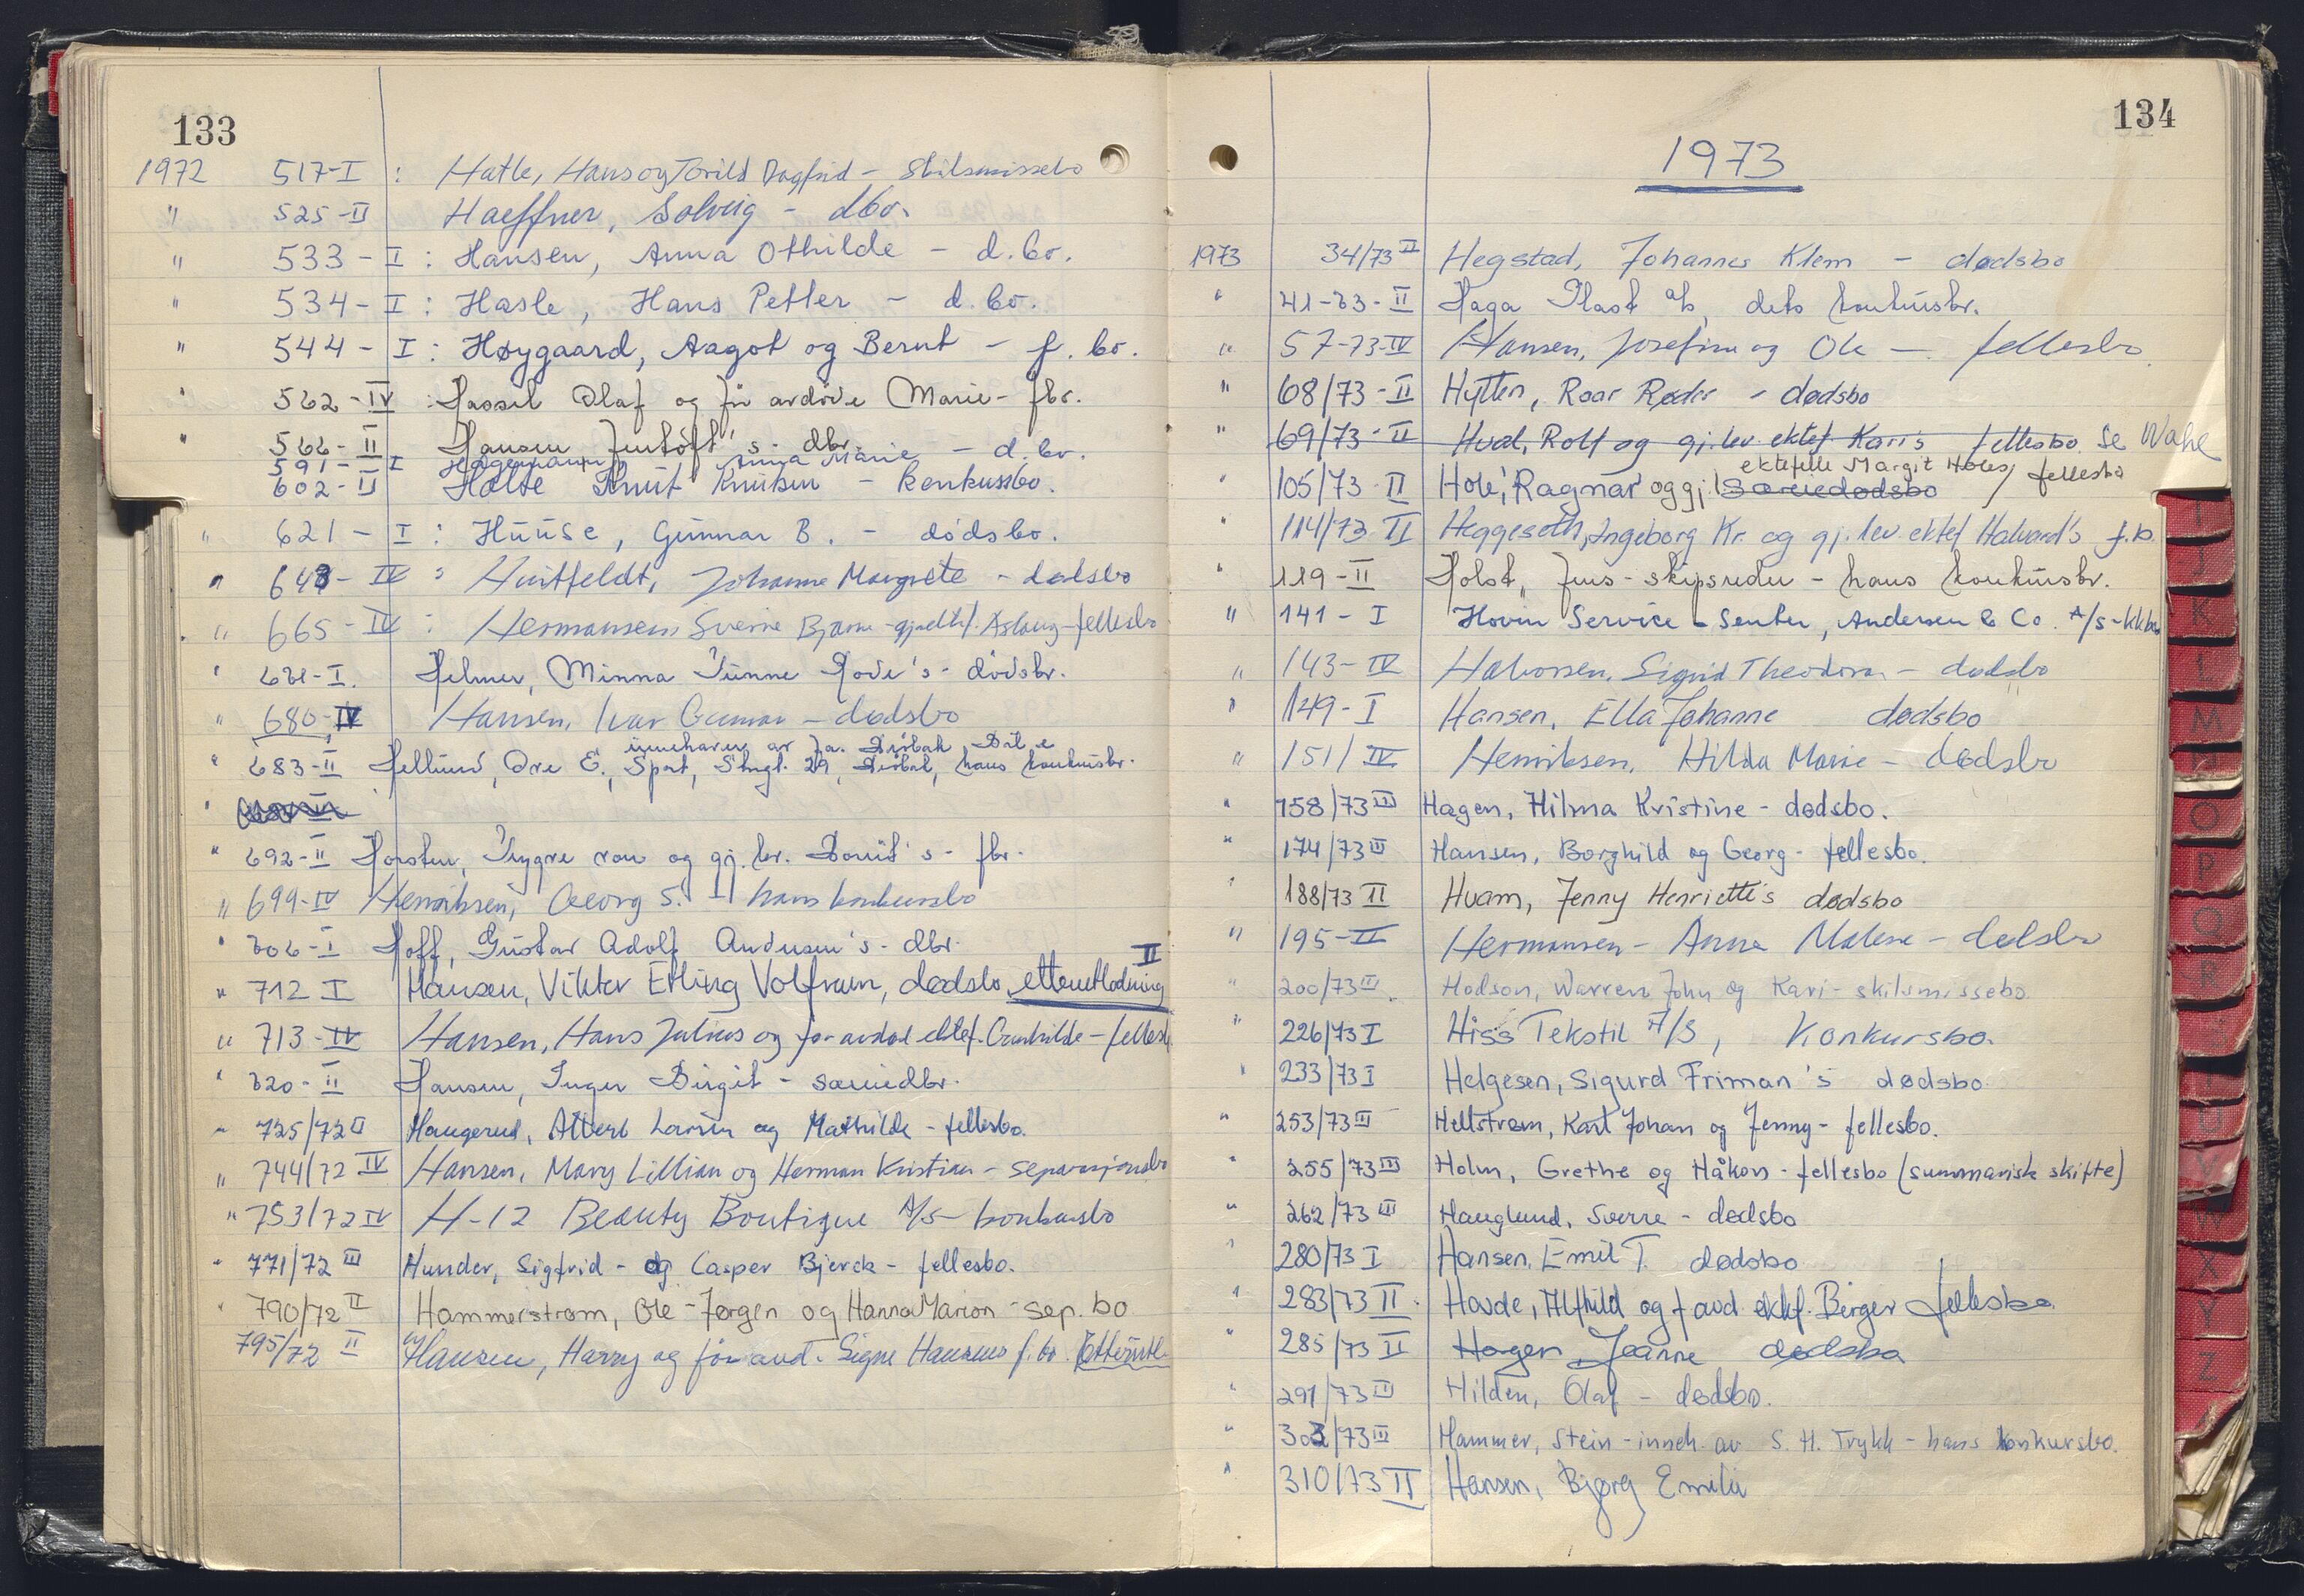 133
1972 517-I : Hatle, Hans og Torild Dagfrid - skilsmissebo
" 525-II Haeffner, Solveig - dbo.
" 533-I : Hansen, Anna Othilde - d.bo.
" 534-I : Hasle, Hans Petter - d.bo.
" 544-I : Høygaard, Aagot og Bernt - f.bo.
" 562-IV : Hassel Olaf og før avdöde Marie - fbo.
" 566-II Hansen 's - dbo.
591-I Anna Marie - d.bo.
602-II Holte Knut Knutsen - konkursbo.
" 621-I : Huuse, Gunnar B. - dödsbo.
" 643-IV : Huitfeldt, Johanne Margrete - dødsbo
" 665-IV : Hermansen, Sverre Bjarne - Aslaug - fellesbo
" I. Helmer, Minna Rode's - dödsbo.
" 680-IV Hansen, Ivar Gunnar - dødsbo
innehaver av fa. Drøbak Bil &
" 683-II Hellund, Ove E., Sport, Storgt. 29, Drøbak, hans konkursbo.
"
" 692-II Horsten, Trygve von og gj.lev. 's - fbo.
" 699-IV Henriksen, Georg S. - hans konkursbo
" 706-I Hoff, Gustav Adolf Andersen's - dbo.
" 712 I Hansen, Viktor Erling Volfram, dødsbo, etterutlodning II
" 713-IV Hansen, Hans Julius og før avdøde ektef. Gunhilde - fellesb
" 720-II Hansen, Inger Birgit - særiedbo.
" 725/72 II Haugerud, Albert Larsen og Mathilde - fellesbo.
" 744/72 IV Hansen, Mary Lillian og Herman Kristian - separasjonsbo
" 753/72 IV H-12 Beauty Boutique A/S - konkursbo
" 771/72 III Hunder, Sigfrid - og Casper Bjerck - fellesbo.
" 790/72 II Hammerstrøm, Ole-Jørgen og Hanna Marion - sep. bo
795/72 II Hansen, Harry og før avd. Signe Hansens f.bo. Etterutl.
134
1973
1973 34/73 II Hegstad, Johannes Klem - dødsbo
" 41-73-II Haga Plast A/S, dets konkursbo.
" 57-73-IV Hansen, Josefine og Ole - fellesbo
" 68/73-II Hytten, Roar Røder - dødsbo
" 69/73-II Hval, Rolf og gj.lev. ektef. Kari's fellesbo. Se Wahl
ektefelle Margit Holes, fellesbo
" 105/73 II Hole, Ragnar og gj.l Særiedødsbo
" 114/73 II Heggeseth, Ingeborg Kr. og gj.lev. ektef Halvard's f.b.
" 119-II Holst, Jens - skipsreder - hans konkursbo.
" 141-I Hovin Service-Senter, Andersen & Co. A/S - kkbo
" 143-IV Halvorsen, Sigrid Theodora - dødsbo
" 149-I Hansen, Ella Johanne dødsbo
" 151/IV Henriksen, Hilda Marie - dødsbo
" 158/73 III Hagen, Hilma Kristine - dødsbo.
" 174/73 III Hansen, Borghild og Georg - fellesbo.
" 188/73 II Hvam, Jenny Henriette's dødsbo
" 195-IV Hermansen - Anna Malene - dødsbo
" 200/73 III. Hodson, Warren John og Kari - skilsmissebo.
" 226/73 I Hiss Tekstil A/S, Konkursbo.
" 233/73 I Helgesen, Sigurd Friman's dødsbo.
" 253/73 III Hellstrøm, Karl Johan og Jenny - fellesbo.
" 255/73 III Holm, Grethe og Håkon - fellesbo (summarisk skifte)
" 262/73 III Hauglund, Sverre - dødsbo
" 280/73 I Hansen, Emil T. dødsbo
" 283/73 II. Hovde, Alfhild og f avd ektef. Birger fellesbo
" 285/73 II Hagen, Joanne dødsbo
" 291/73 III Hilden, Olaf - dødsbo.
" 303/73 III Hammer, Stein - inneh. av S. H. Trykk - hans konkursbo.
" 310/73 II Hansen, Bjørg Emilie
J
K
L
M
N
O
P
Q
R
T
U
V
W
X
Y
Z